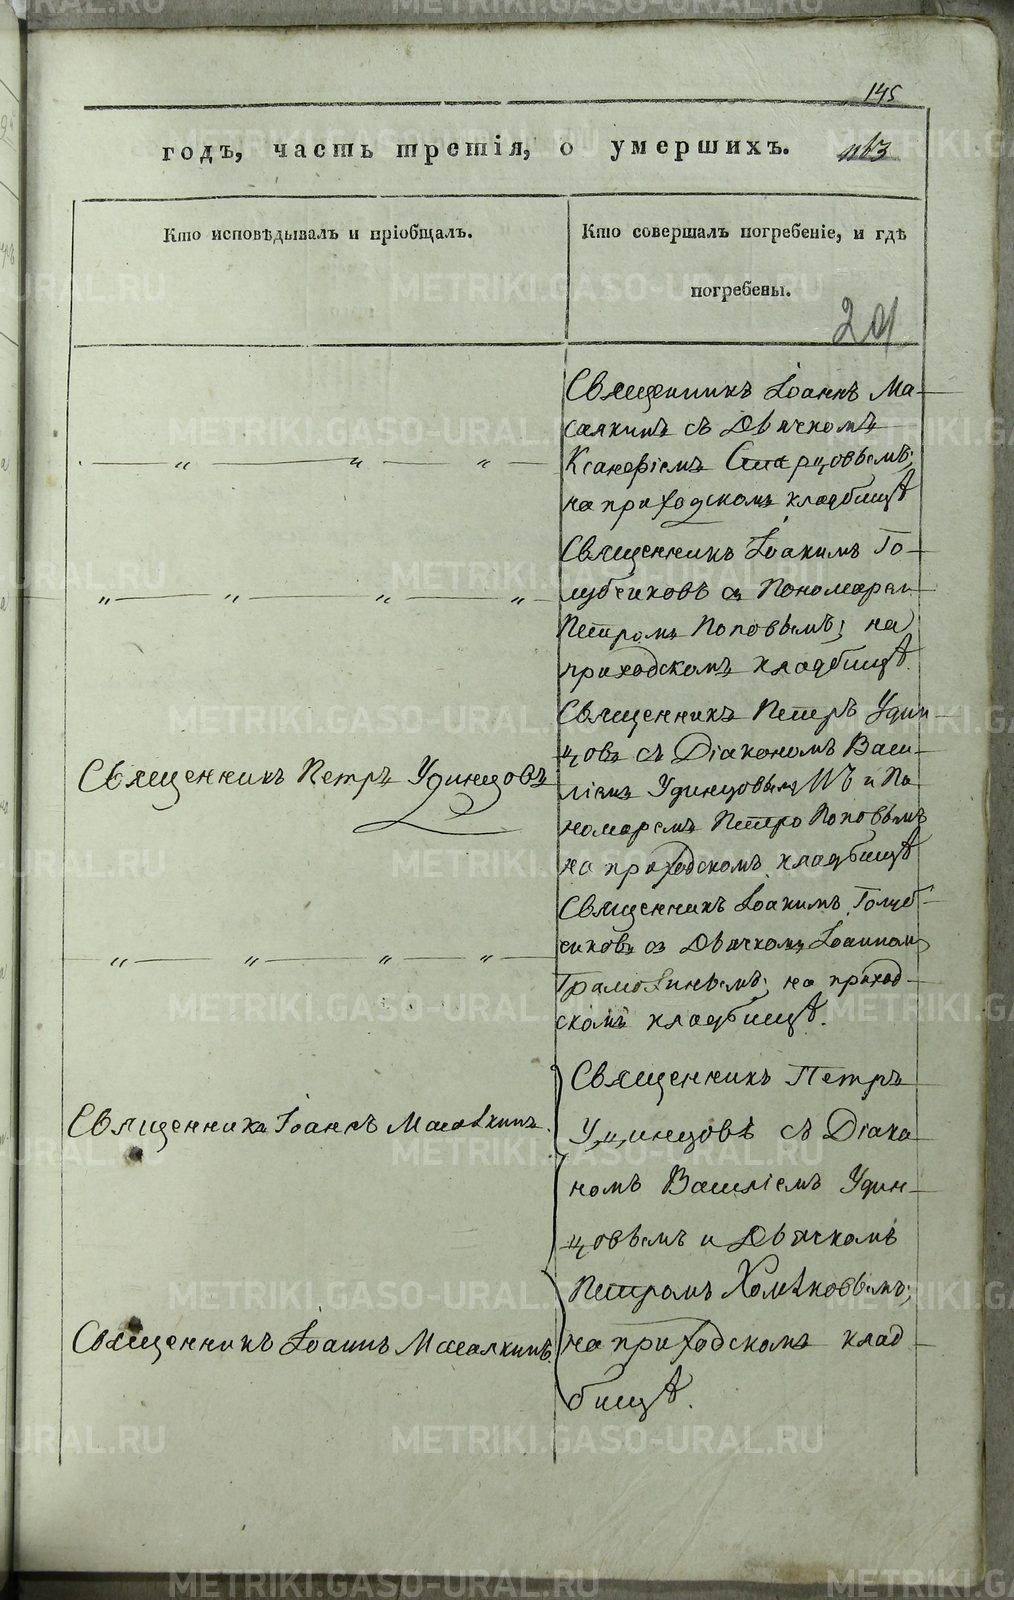 145
годъ, часть третія, о умершихъ.
Кто исповѣдывалъ и пріобщалъ.
Кто совершалъ погребеніе, и гдѣ
погребены.
201
Священникъ Іоаннъ Ма-
салкинъ съ Дьячкомъ
Ксанфіемъ Старцовымъ;
на приходскомъ кладбищѣ
Священникъ Іоакимъ Го-
лубчиковъ съ Пономарем
Петромъ Поповымъ; на
приходскомъ кладбищѣ.
Священникъ Петръ Удинцовъ
Священникъ Петръ Удин-
цовъ съ Діакономъ Васи-
ліемъ Удинцовымъ и По
номаремъ Петро Поповымъ
на приходскомъ кладбищѣ
Священникъ Іоакимъ Голуб-
чиковъ съ Дьячкомъ Іоанном
на приход-
скомъ кладбищѣ.
Священникъ Іоаннъ Масалкинъ.
Священникъ Петръ
Удинцовъ съ Діако-
номъ Василіемъ Удин-
цовымъ и Дьячкомъ
Петромъ Хомяковымъ;
Священникъ Іоаннъ Масалкинъ.
на приходскомъ клад-
бищѣ.
METRIKI.GASO-URAL.RU